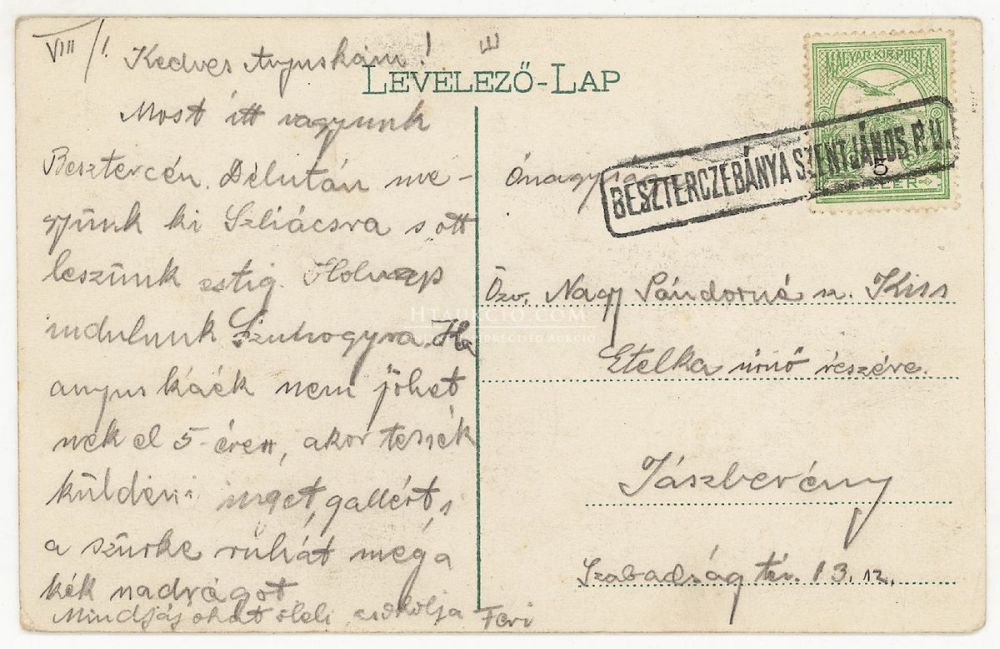 VIII/1.
Kedves Anyuskám!
LEVELEZŐ-LAP
Most itt vagyunk
Besztercén. Délután me-
gyünk ki Szliácsra s ott
leszünk estig. Holnap
indulunk Szuhogyra. Ha
anyuskáék nem jöhet
nek el 5-éren, akor tessék
küldeni inget, gallért s
a szürke ruhát meg a
kék nadrágot.
Mindjájokat öleli csókolja Feri
MAGYAR·KIR·POSTA
5
BESZTERCZEBÁNYA SZENT JÁNOS P. U.
Önagysága
Özv. Nagy Sándorné sz. Kiss
Etelka úrnő részére.
Jászberény
Szabadság tér. 13. sz.
HTAUKCIO.COM